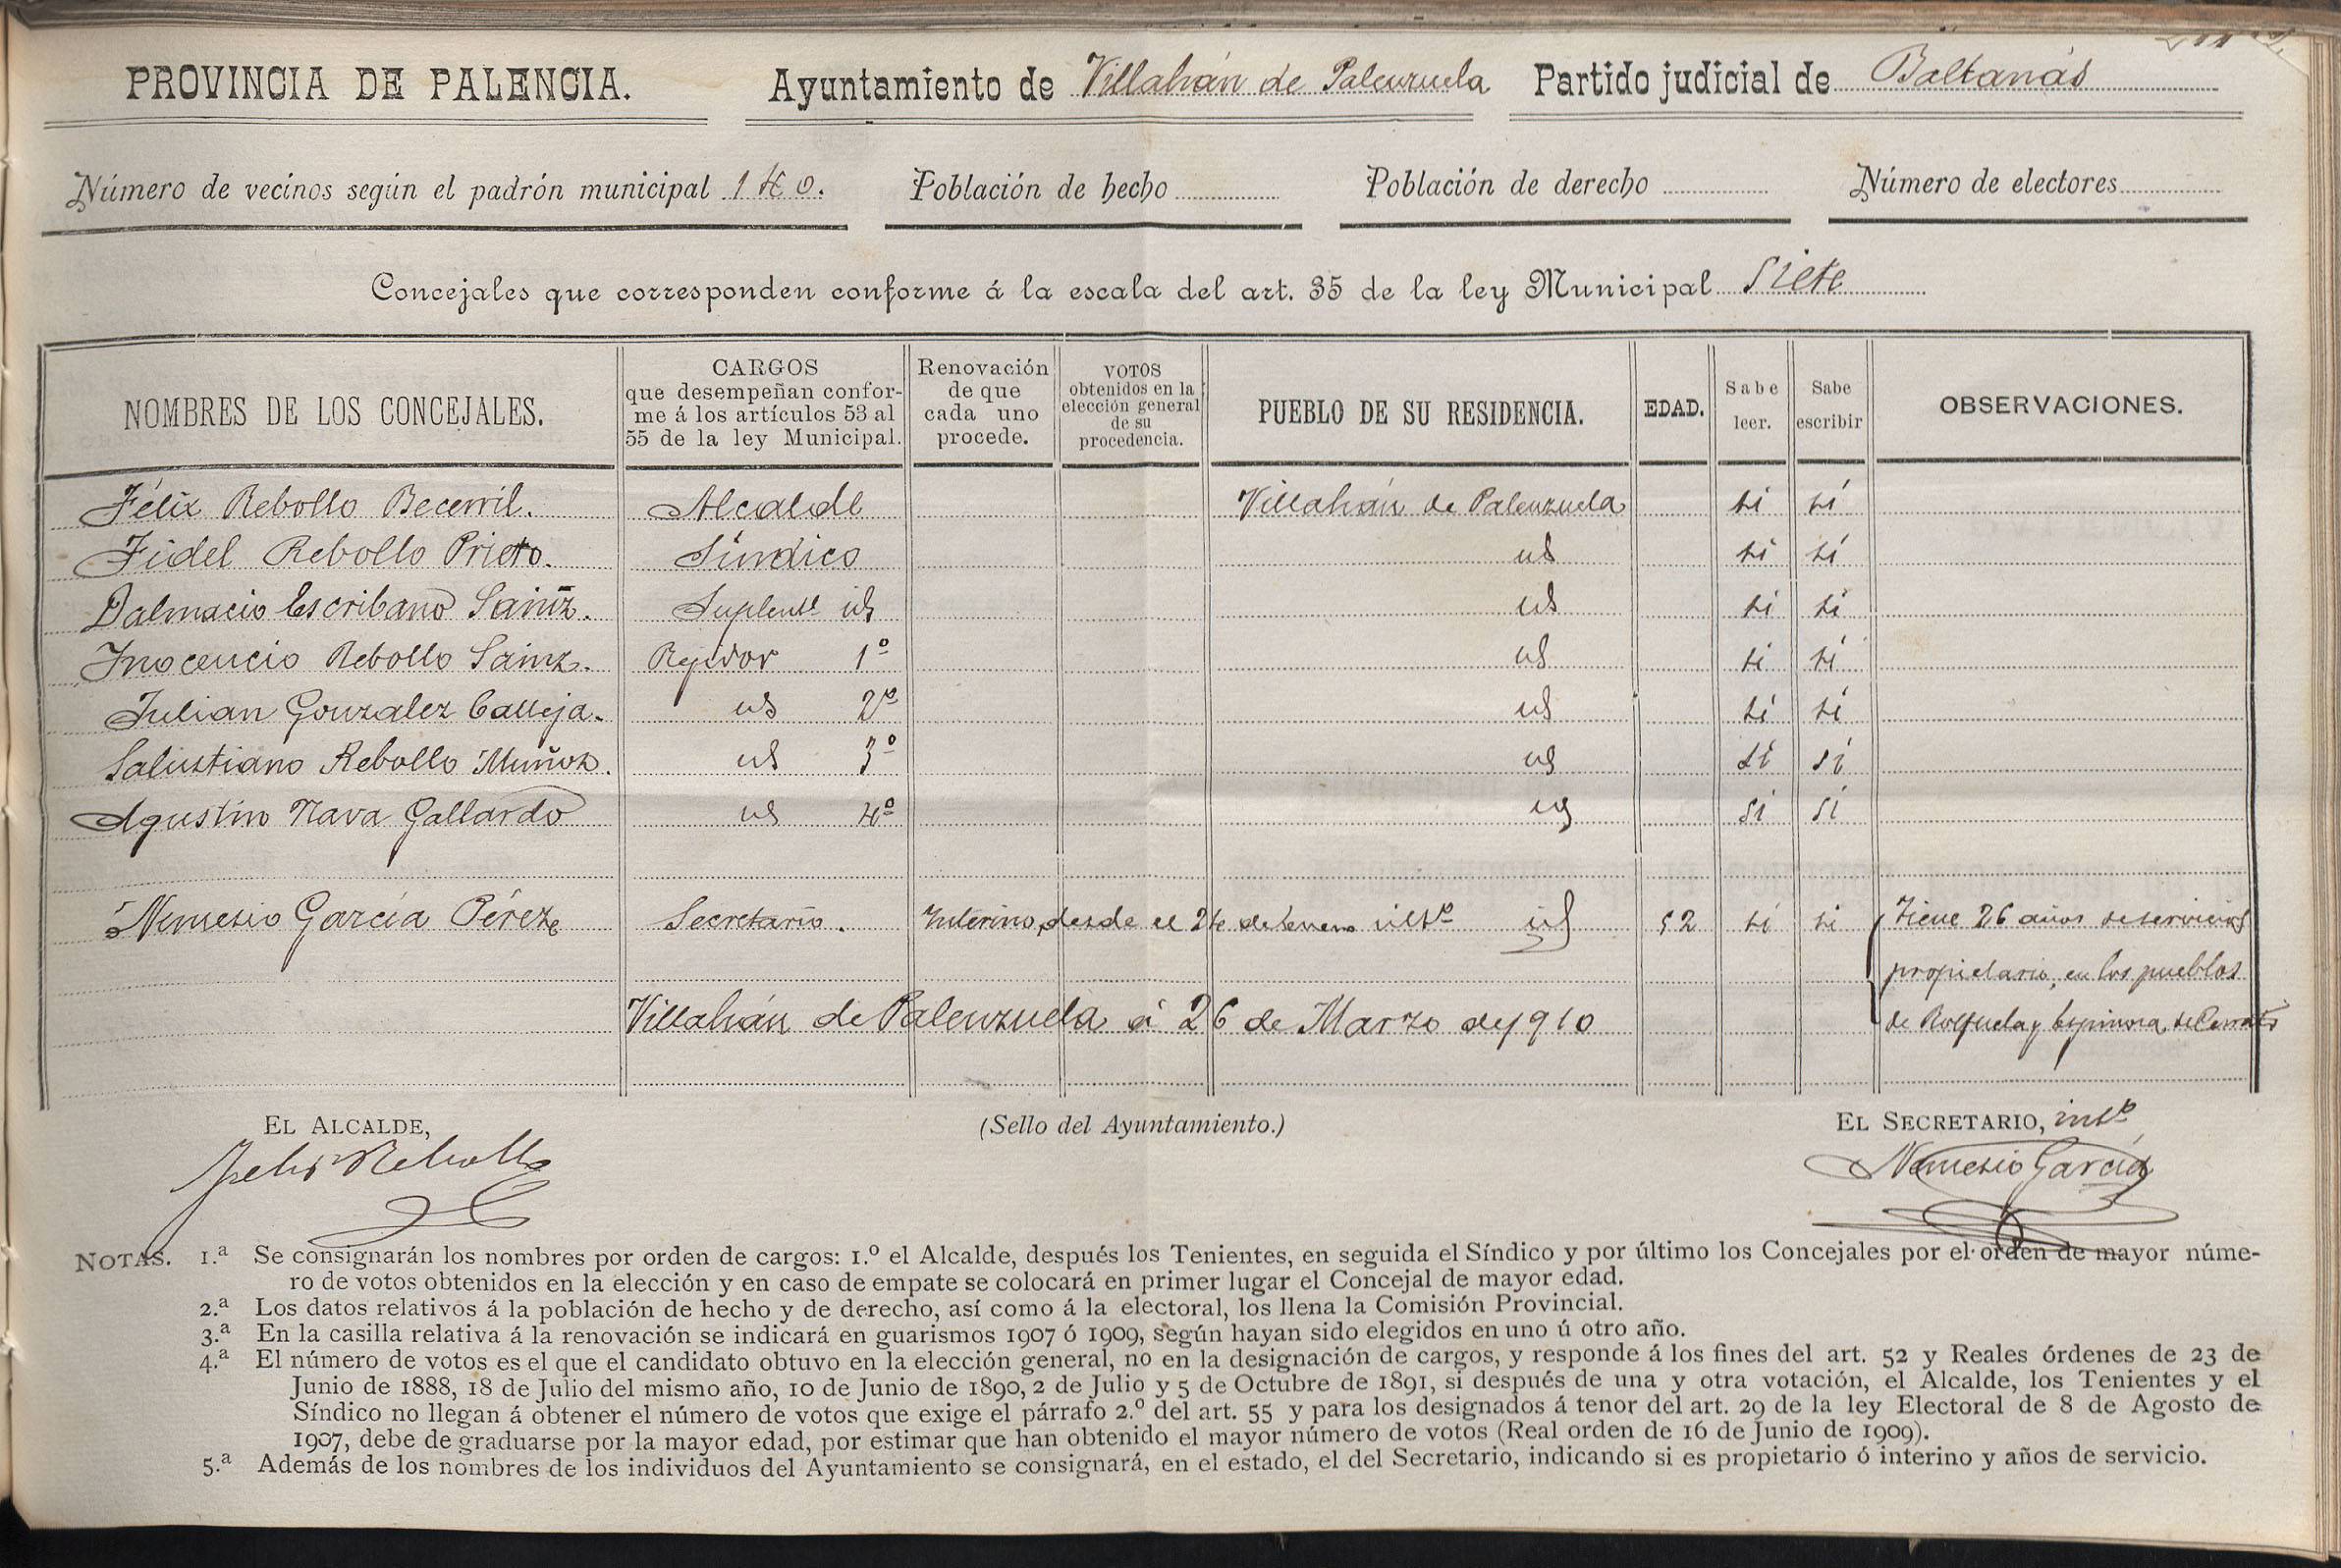 PROVINCIA DE PALENCIA. Ayuntamiento de Villahán de Palenzuela Partido judicial de Baltanás
Número de vecinos según el padrón municipal 140. Población de hecho Población de derecho Número de electores
Concejales que corresponden conforme á la escala del art. 35 de la ley Municipal Siete
NOMBRES DE LOS CONCEJALES. CARGOS que desempeñan confor- me á los artículos 53 al 55 de la ley Municipal. Renovación de que cada uno procede. VOTOS obtenidos en la elección general de su procedencia. PUEBLO DE SU RESIDENCIA. EDAD. Sabe leer. Sabe escribir OBSERVACIONES.
Félix Rebollo Becerril. Alcalde Villahán de Palenzuela si sí
Fidel Rebollo Prieto. Síndico id si sí
Dalmacio Escribano Sainz. Suplente id id si si
Inocencio Rebollo Sainz. Regidor 1º id si sí
Julian Gonzalez Calleja. id 2º id si si
Salustiano Rebollo Muñoz. id 3º id si si
Agustin Nava Gallardo id 4º id si si
Nemesio García Pérez Secretario. Interino, desde el 24 de Enero ultº id 52 si si Tiene 26 años de servicios
propietario, en los pueblos
Villahán de Palenzuela á 26 de Marzo de 1910 de y Espinosa de Cerrato
EL ALCALDE, (Sello del Ayuntamiento.) EL SECRETARIO, intº
Felix Rebollo Nemesio García
NOTAS. 1.ª Se consignarán los nombres por orden de cargos: 1.º el Alcalde, después los Tenientes, en seguida el Síndico y por último los Concejales por el orden de mayor núme-
ro de votos obtenidos en la elección y en caso de empate se colocará en primer lugar el Concejal de mayor edad.
2.ª Los datos relativos á la población de hecho y de derecho, así como á la electoral, los llena la Comisión Provincial.
3.ª En la casilla relativa á la renovación se indicará en guarismos 1907 ó 1909, según hayan sido elegidos en uno ú otro año.
4.ª El número de votos es el que el candidato obtuvo en la elección general, no en la designación de cargos, y responde á los fines del art. 52 y Reales órdenes de 23 de
Junio de 1888, 18 de Julio del mismo año, 10 de Junio de 1890, 2 de Julio y 5 de Octubre de 1891, si después de una y otra votación, el Alcalde, los Tenientes y el
Síndico no llegan á obtener el número de votos que exige el párrafo 2.º del art. 55 y para los designados á tenor del art. 29 de la ley Electoral de 8 de Agosto de
1907, debe de graduarse por la mayor edad, por estimar que han obtenido el mayor número de votos (Real orden de 16 de Junio de 1909).
5.ª Además de los nombres de los individuos del Ayuntamiento se consignará, en el estado, el del Secretario, indicando si es propietario ó interino y años de servicio.